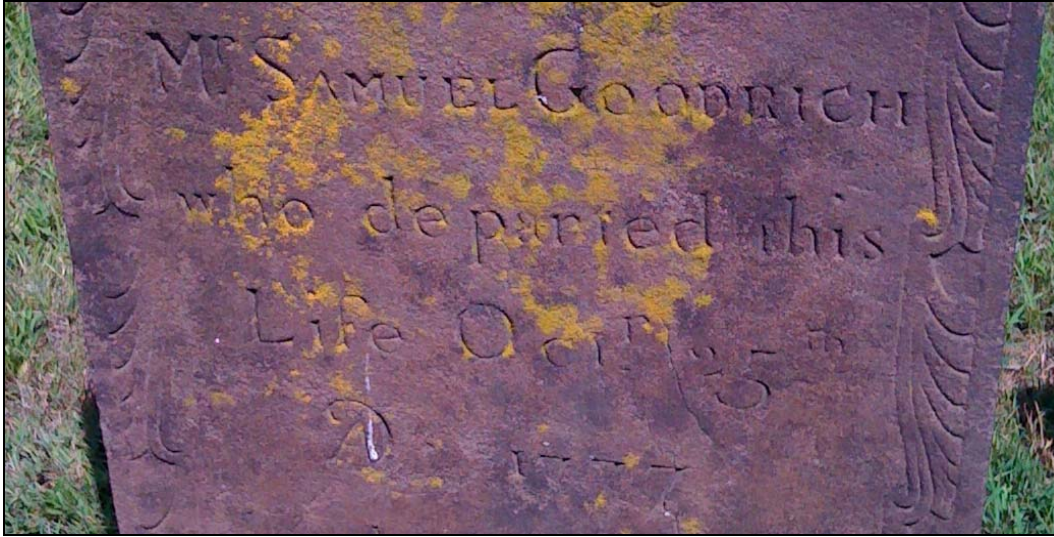 Mr. SAMUEL GOODRICH
who departed this
Life Octr. 25th
A 177